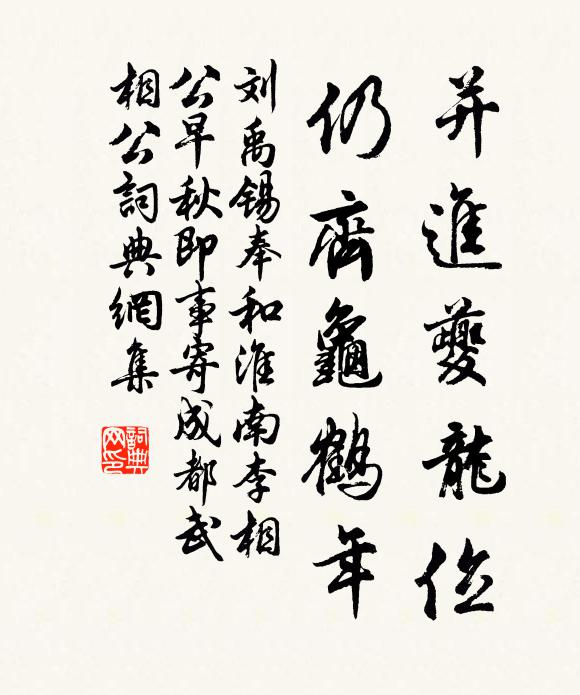 并進夔龍位
仍齊龜鶴年
刘禹锡奉和淮南李相
公早秋即事寄成都武
相公詞典網集
詞典
网印